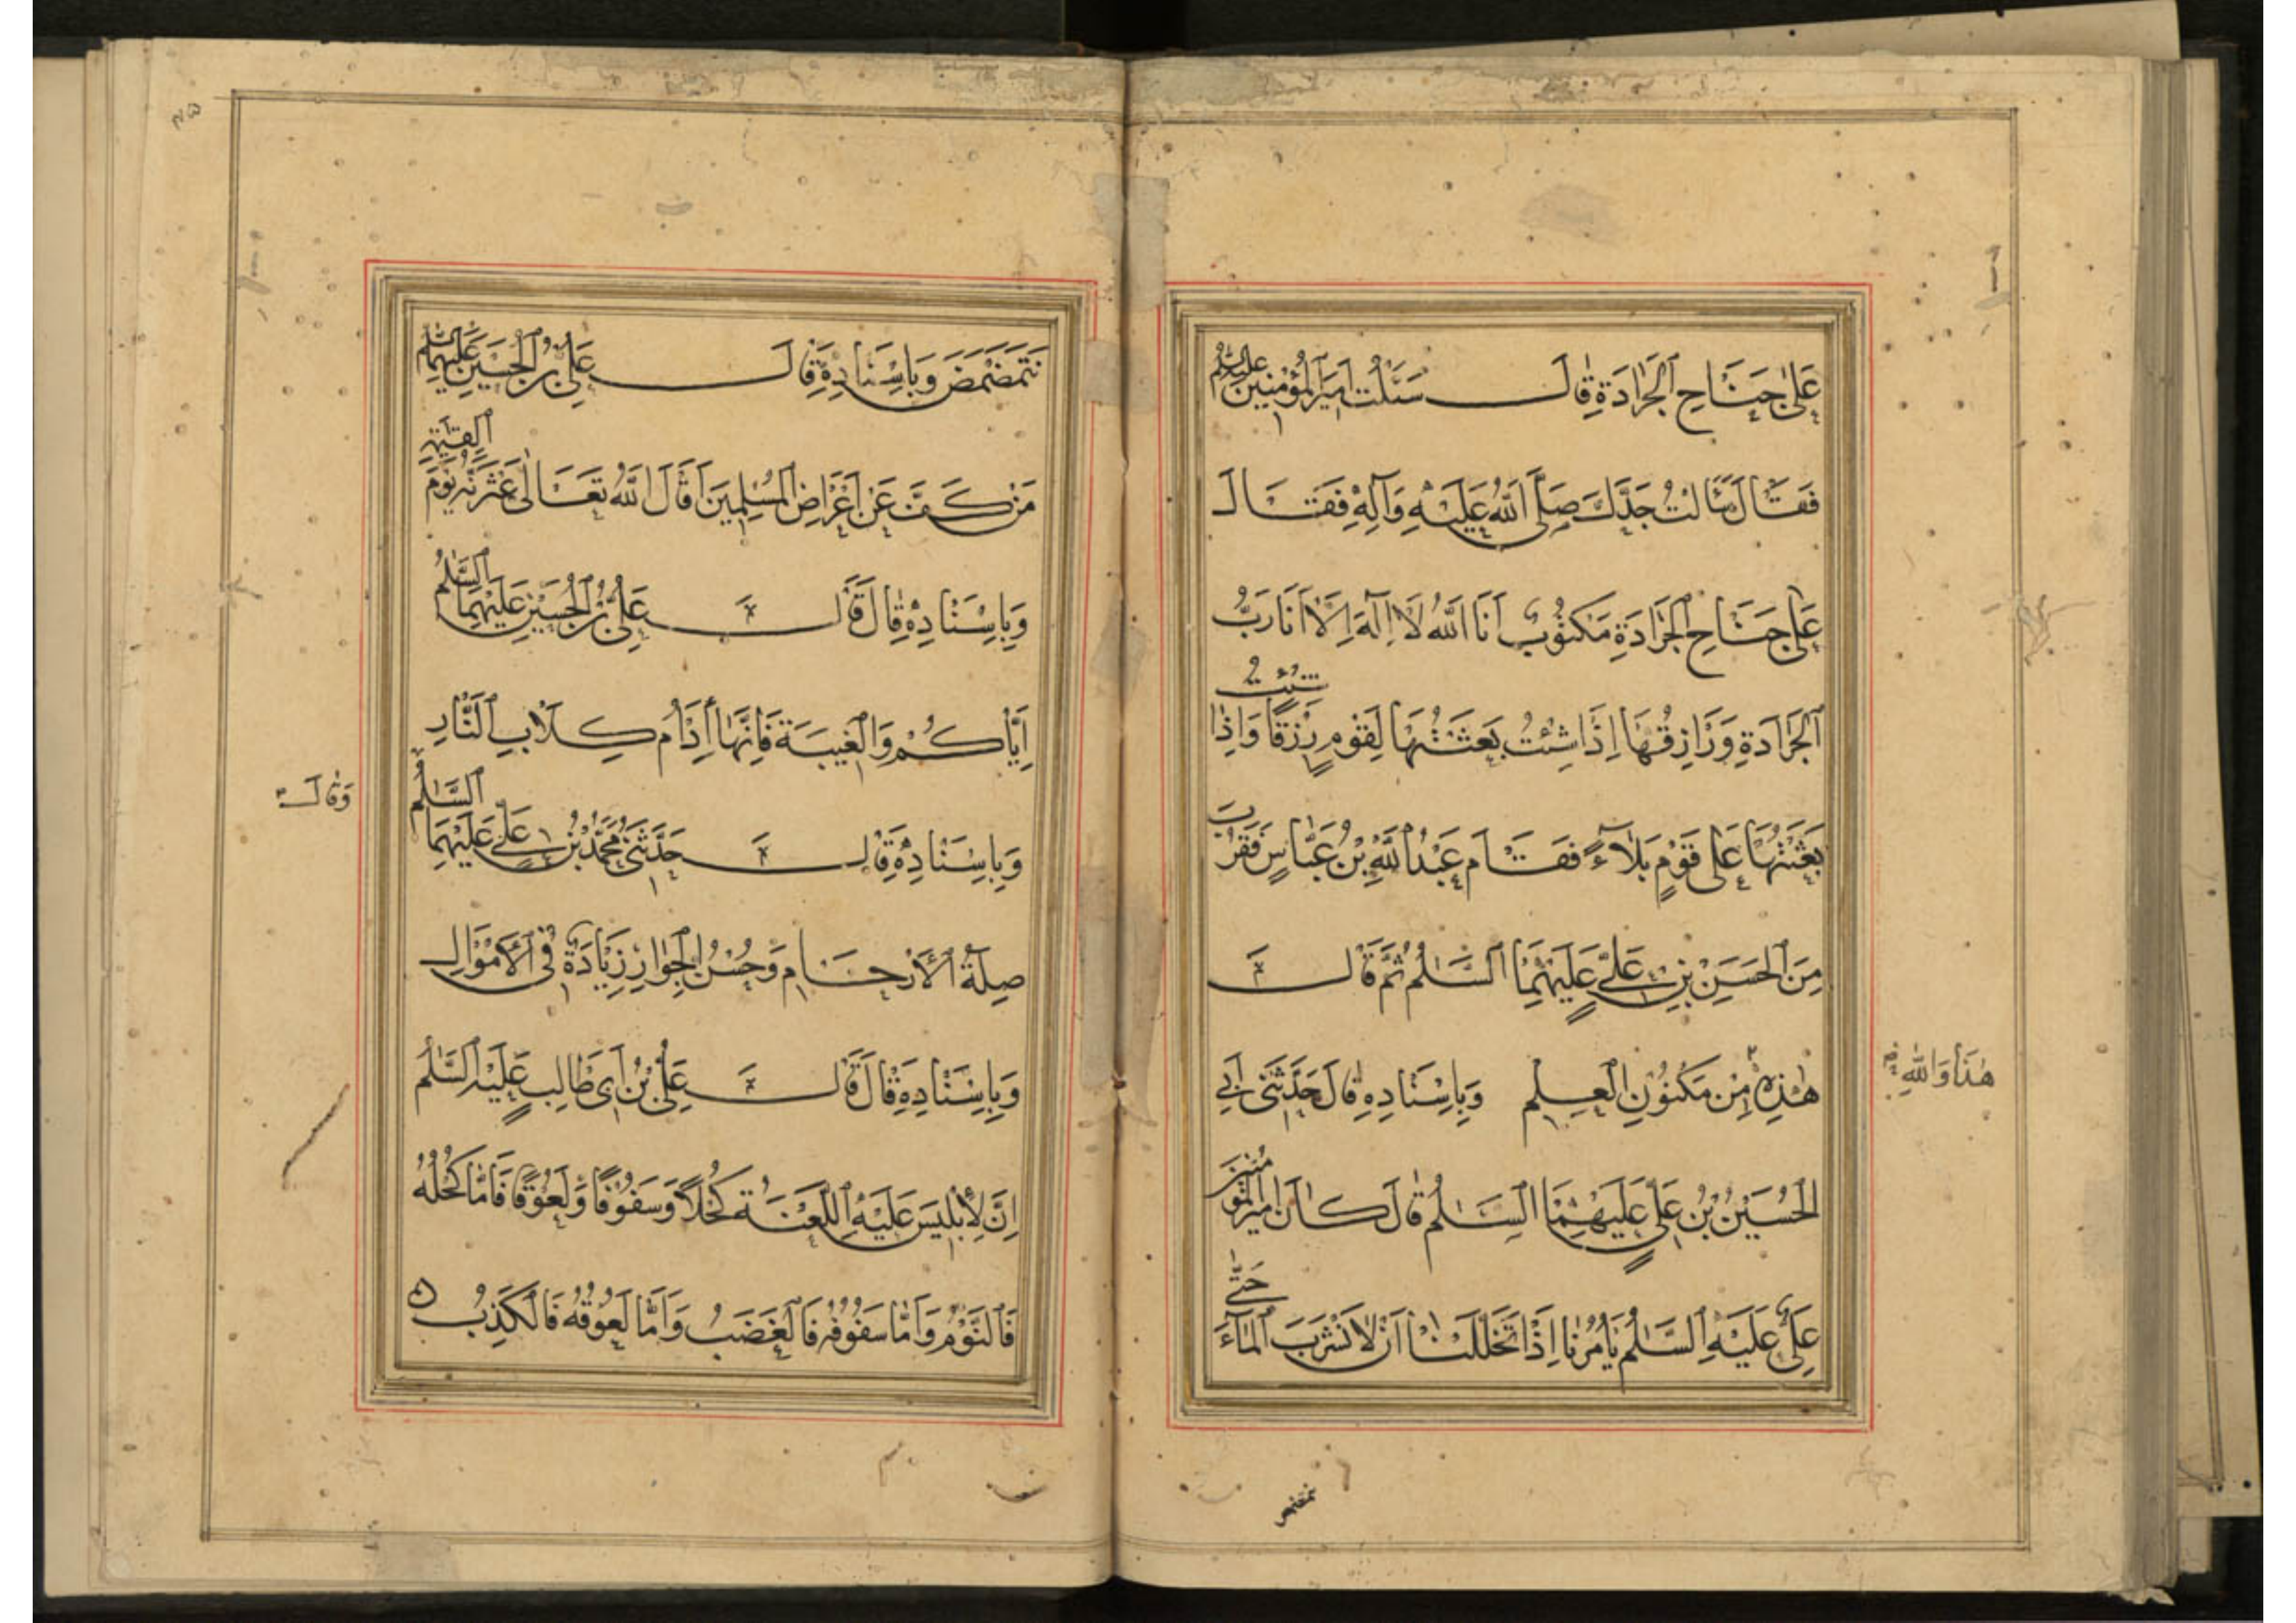 عَلیٰ جَنَاحِ الْجَرَادَةِ قَالَ سَئَلْتُ اَمِيرَ الْمُؤْمِنِينَ عَلَيْهِ السَّلٰمُ
فَقَالَ سَئَالْتُ جَدَّكَ صَلَّى اللّٰهُ عَلَيْهِ وَآلِهِ فَقَالَ
عَلٰى جَنَاحِ الْجَرَادَةِ مَكْتُوْبٌ اَنَا اللّٰهُ لَا اِلٰهَ اِلَّا اَنَا رَبُّ
الْجَرَادَةِ وَرَازِقُهَا اِذَا شِئْتُ بَعَثْتُهَا لِقَوْمٍ رِزْقًا وَاِذَا شِئْتُ
بَعَثْتُهَا عَلٰى قَوْمٍ بَلَاءً فَقَامَ عَبْدُ اللّٰهِ بْنُ عَبَّاسٍ فَقَرُبَ
مِنَ الْحَسَنِ بْنِ عَلِيٍّ عَلَيْهِمَا السَّلٰمُ ثُمَّ قَالَ
هٰذِهِ مِنْ مَكْنُوْنِ الْعِلْمِ وَبِاِسْنَادِهِ قَالَ حَدَّثَنِى اَبِى
هٰذَا وَاللّٰهِ
الْحُسَيْنُ بْنُ عَلِيٍّ عَلَيْهِمَا السَّلٰمُ قَالَ كَانَ اَمِيْرُ الْمُؤْمِنِيْنَ
عَلِىٌّ عَلَيْهِ السَّلٰمُ يَأْمُرُنَا اِذَا تَخَلَّلْنَا اَنْ لَا نَشْرَبَ الْمَاءَ حَتّٰى
نتمضمض
نَتَمَضْمَضَ وَبِاِسْنَادِهِ قَالَ عَلِىُّ بْنُ الْحُسَيْنِ عَلَيْهِمَا السَّلٰمُ
مَنْ كَفَّ عَنْ اَعْرَاضِ الْمُسْلِمِيْنَ اَقَالَ اللّٰهُ تَعَالٰى عَثْرَتَهُ يَوْمَ الْقِيٰمَةِ
وَبِاِسْنَادِهِ قَالَ قَالَ عَلِىُّ بْنُ الْحُسَيْنِ عَلَيْهِمَا السَّلٰمُ
اِيَّاكُمْ وَالْغِيْبَةَ فَاِنَّهَا اِدَامُ كِلَابِ النَّارِ
وَقَالَ
وَبِاِسْنَادِهِ قَالَ حَدَّثَنِى مُحَمَّدُ بْنُ عَلِيٍّ عَلَيْهِمَا السَّلٰمُ
صِلَةُ الْاَرْحَامِ وَحُسْنُ الْجِوَارِ زِيَادَةٌ فِى الْاَمْوَالِ
وَبِاِسْنَادِهِ قَالَ قَالَ عَلِىُّ بْنُ اَبِى طَالِبٍ عَلَيْهِ السَّلٰمُ
اِنَّ لِاِبْلِيْسَ عَلَيْهِ اللَّعْنَةُ كُحْلًا وَسَفُوْفًا وَلَعُوْقًا فَاَمَّا كُحْلُهُ
فَالنَّوْمُ وَاَمَّا سَفُوْفُهُ فَالْغَضَبُ وَاَمَّا لَعُوْقُهُ فَالْكَذِبُ